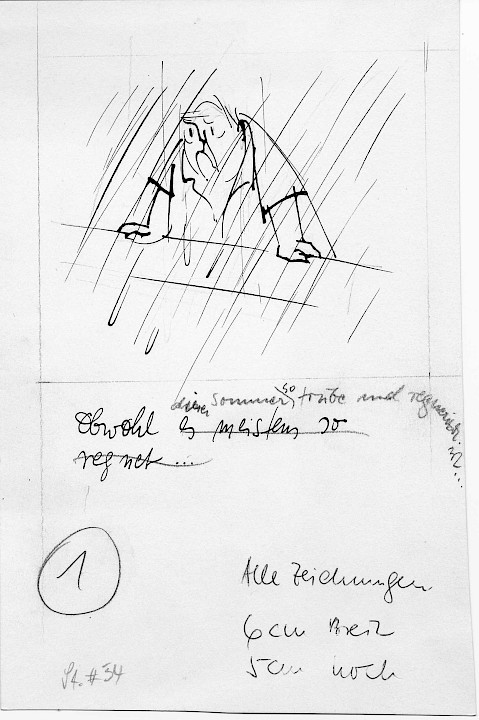 dieser Sommer so trübe und regnerisch ist...
Obwohl es meistens so
regnet...
1
Alle Zeichnungen
6cm Breit
5cm hoch
St. #34